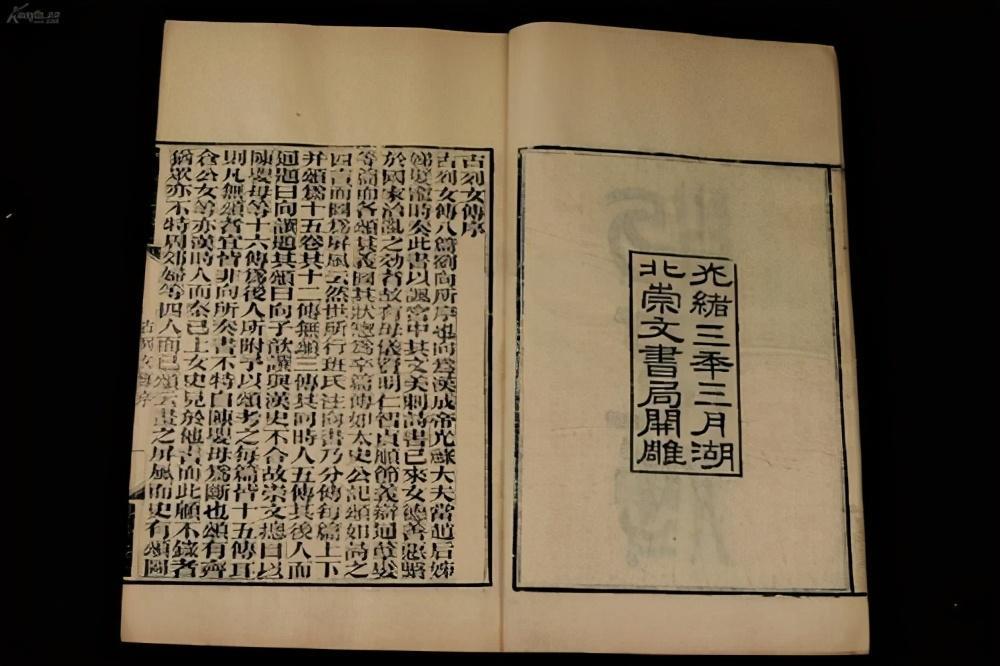 光緒三年三月湖
北崇文書局開雕
古列女傳序
古列女傳八篇劉向所序也向爲漢成帝光祿大夫當趙后姊
娣嬖寵時奏此書以諷宮中其文美刺詩書已來女德善惡繫
於國家治亂之効者故有母儀賢明仁智貞順節義辯通孽嬖
等篇而各頌其義圖其狀總爲卒篇傳如太史公記頌如詩之
四言而圖爲屏風云然世所行班氏注向書乃分傳每篇上下
并頌爲十五卷其十二傳無頌三傳其同時人五傳其後人而
通題曰向譔題其頌曰向子歆譔與漢史不合故崇文總目以
陳嬰母等十六傳爲後人所附予以頌考之每篇皆十五傳耳
則凡無頌者宜皆非向所奏書不特自陳嬰母爲斷也頌有齊
倉公女等亦漢時人而秦已上女史見於他書而此顧不錄者
猶眾亦不特周郊婦等四人而已頌云畫之屏風而史有頌圖
古列女傳序